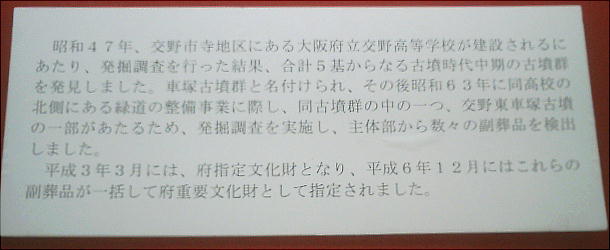 昭和４７年、交野市寺地区にある大阪府立交野高等学校が建設されるに
あたり、発掘調査を行った結果、合計５基からなる古墳時代中期の古墳群
を発見しました。車塚古墳群と名付けられ、その後昭和６３年に同高校の
北側にある緑道の整備事業に際し、同古墳群の中の一つ、交野東車塚古墳
の一部があたるため、発掘調査を実施し、主体部から数々の副葬品を検出
しました。
平成３年３月には、府指定文化財となり、平成６年１２月にはこれらの
副葬品が一括して府重要文化財として指定されました。